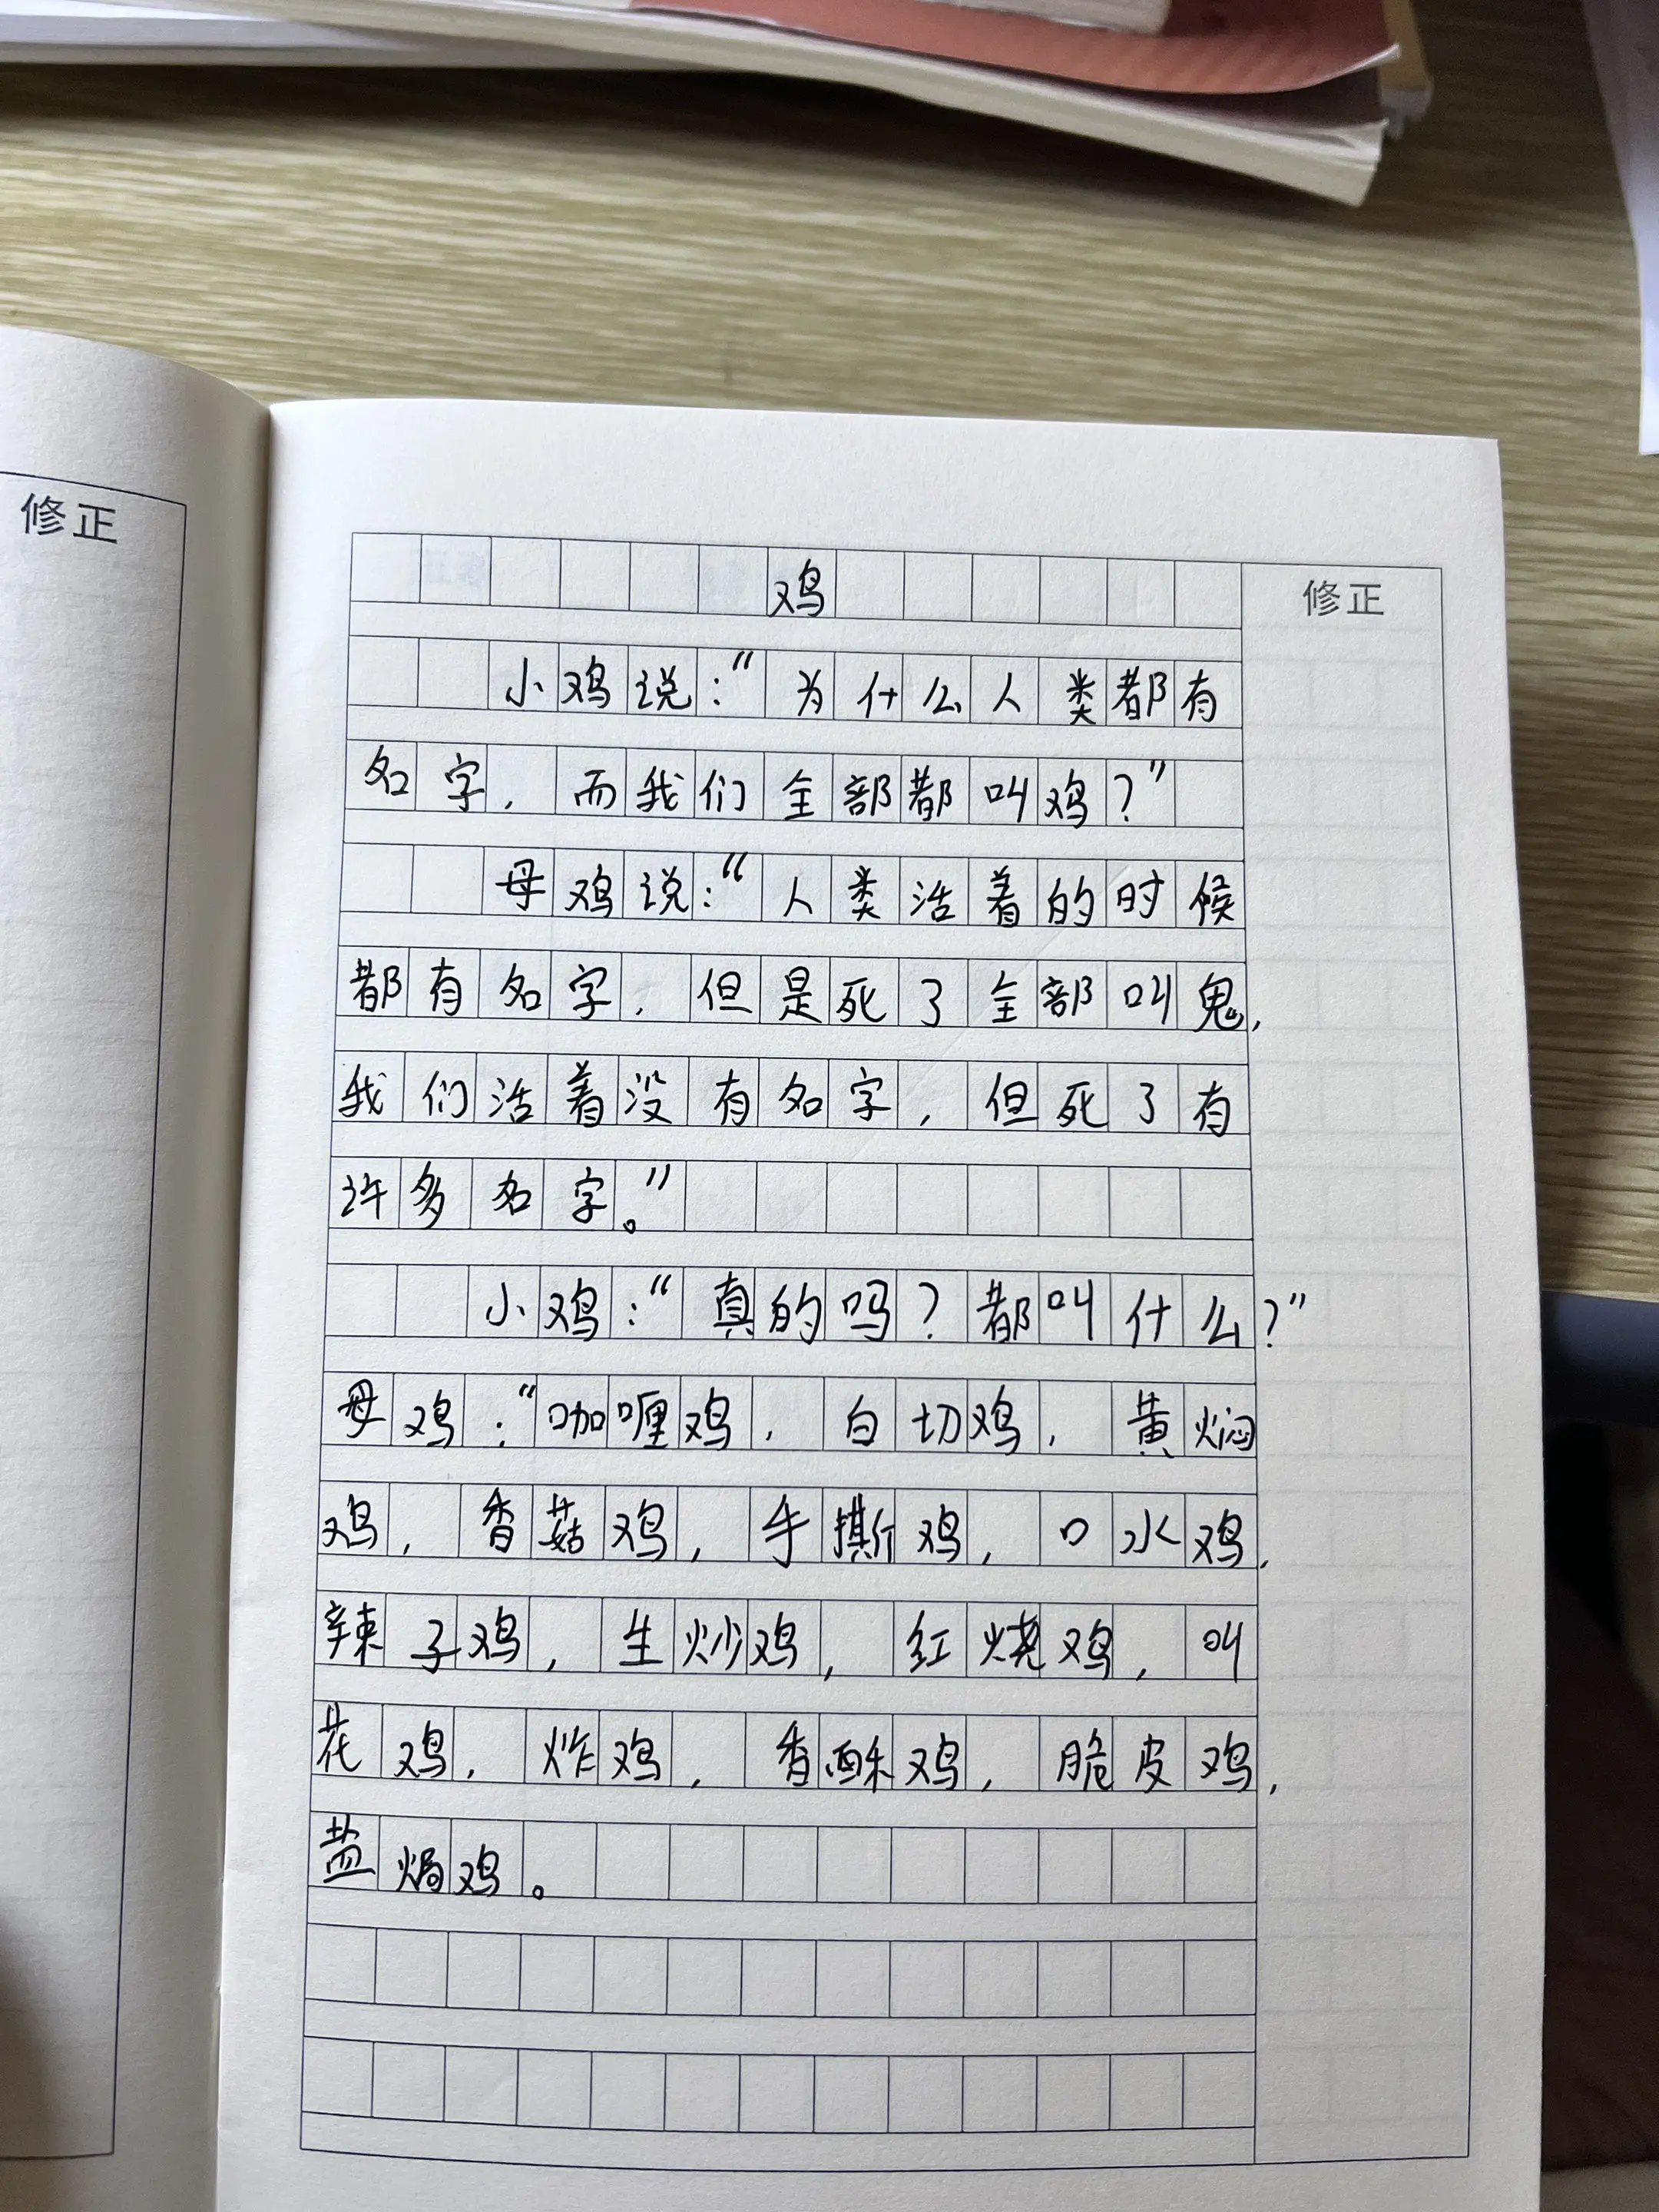 修正
修正
鸡
小鸡说：“为什么人类都有
名字，而我们全部都叫鸡？”
母鸡说：“人类活着的时候
都有名字，但是死了全部叫鬼，
我们活着没有名字，但死了有
许多名字。”
小鸡：“真的吗？都叫什么？”
母鸡：“咖喱鸡，白切鸡，黄焖
鸡，香菇鸡，手撕鸡，口水鸡，
辣子鸡，生炒鸡，红烧鸡，叫
花鸡，炸鸡，香酥鸡，脆皮鸡，
盐焗鸡。